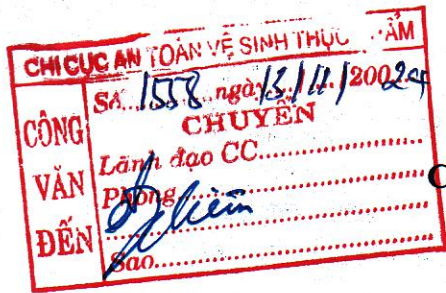 CHI CỤC AN TOÀN VỆ SINH THỰC ẨM
CÔNG VĂN ĐẾN
Số 1558 ngày 13/11/2002
CHUYỂN
Lãnh đạo CC
Phòng
Sao
C